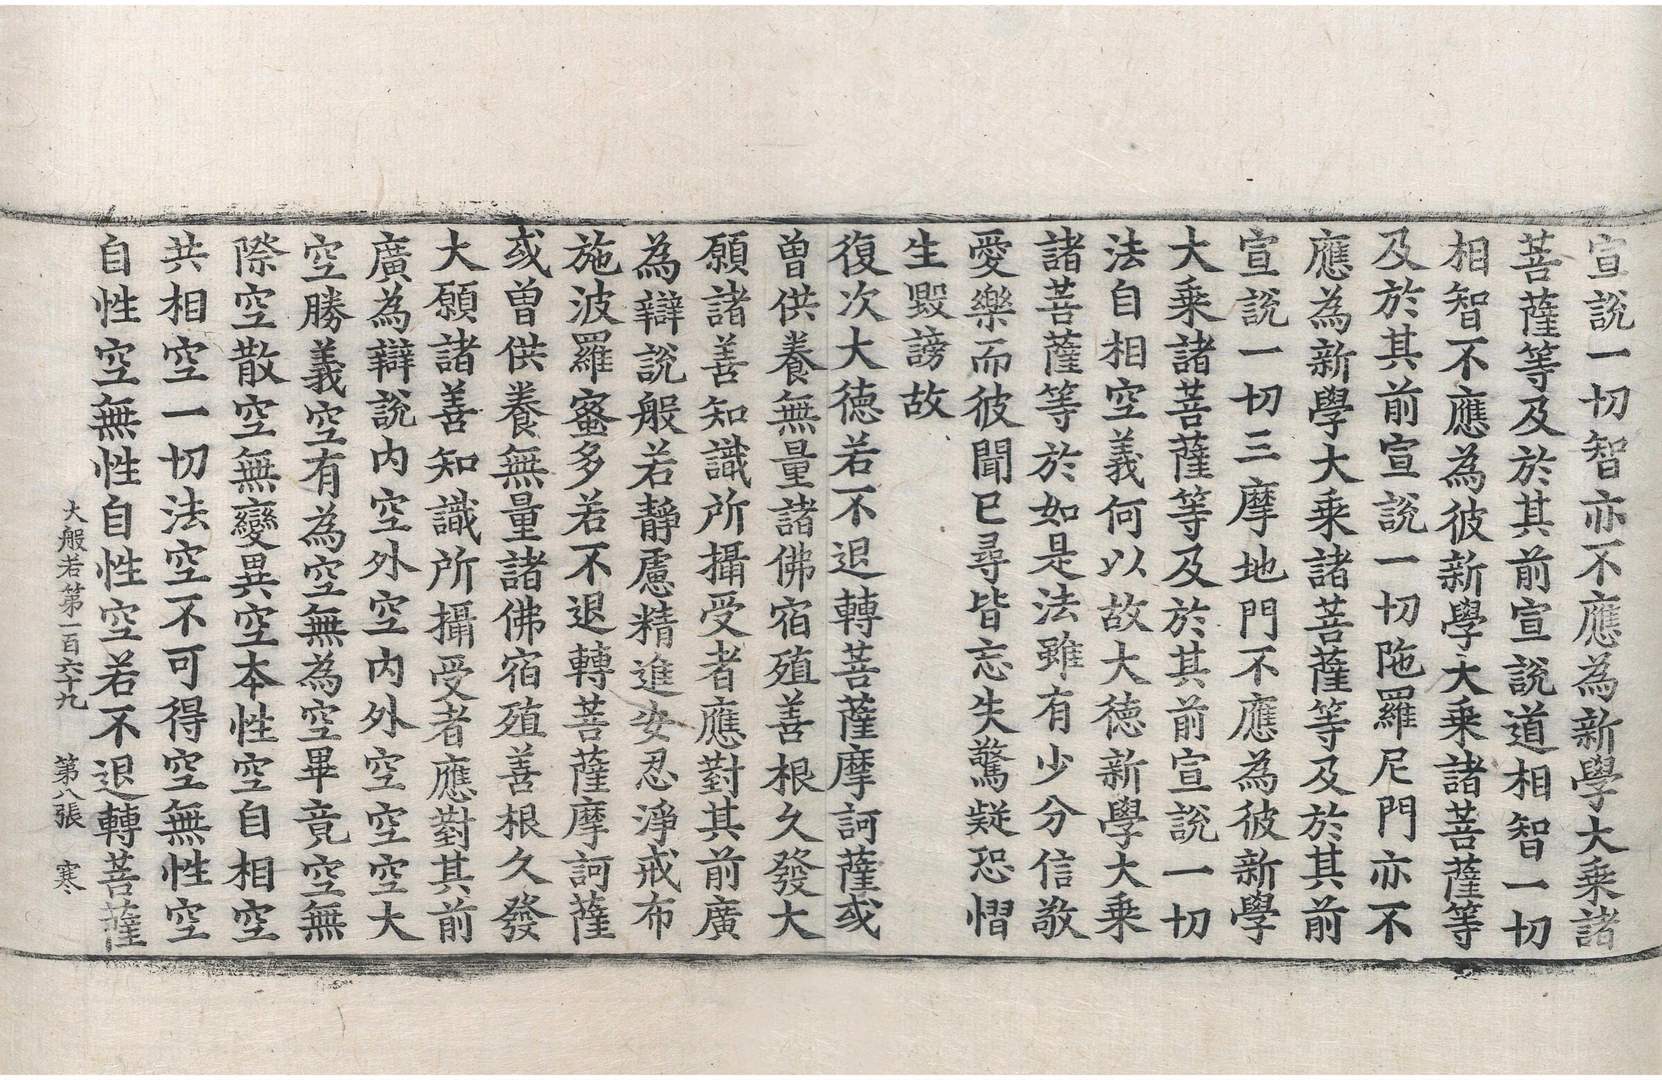 宣說一切智亦不應為新學大乘諸
菩薩等及於其前宣說道相智一切
相智不應為彼新學大乘諸菩薩等
及於其前宣說一切陁羅尼門亦不
應為新學大乘諸菩薩等及於其前
宣說一切三摩地門不應為彼新學
大乘諸菩薩等及於其前宣說一切
法自相空義何以故大德新學大乘
諸菩薩等於如是法雖有少分信敬
愛樂而彼聞已尋皆忘失驚疑恐慴
生毀謗故
復次大德若不退轉菩薩摩訶薩或
曾供養無量諸佛宿殖善根久發大
願諸善知識所攝受者應對其前廣
為辯說般若靜慮精進安忍淨戒布
施波羅蜜多若不退轉菩薩摩訶薩
或曾供養無量諸佛宿殖善根久發
大願諸善知識所攝受者應對其前
廣為辯說內空外空內外空空空大
空勝義空有為空無為空畢竟空無
際空散空無變異空本性空自相空
共相空一切法空不可得空無性空
自性空無性自性空若不退轉菩薩
大般若第一百六十九 第八張 寒